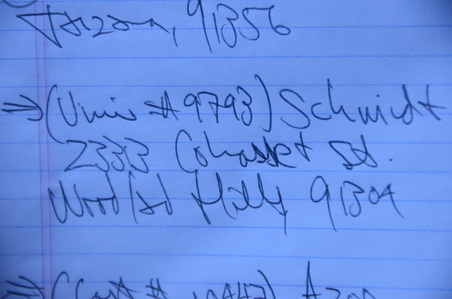 Tarzana, 91356
⇒ (Univ # 9793) Schmidt
23313 Cohasset St.
Woodland Hills 91304